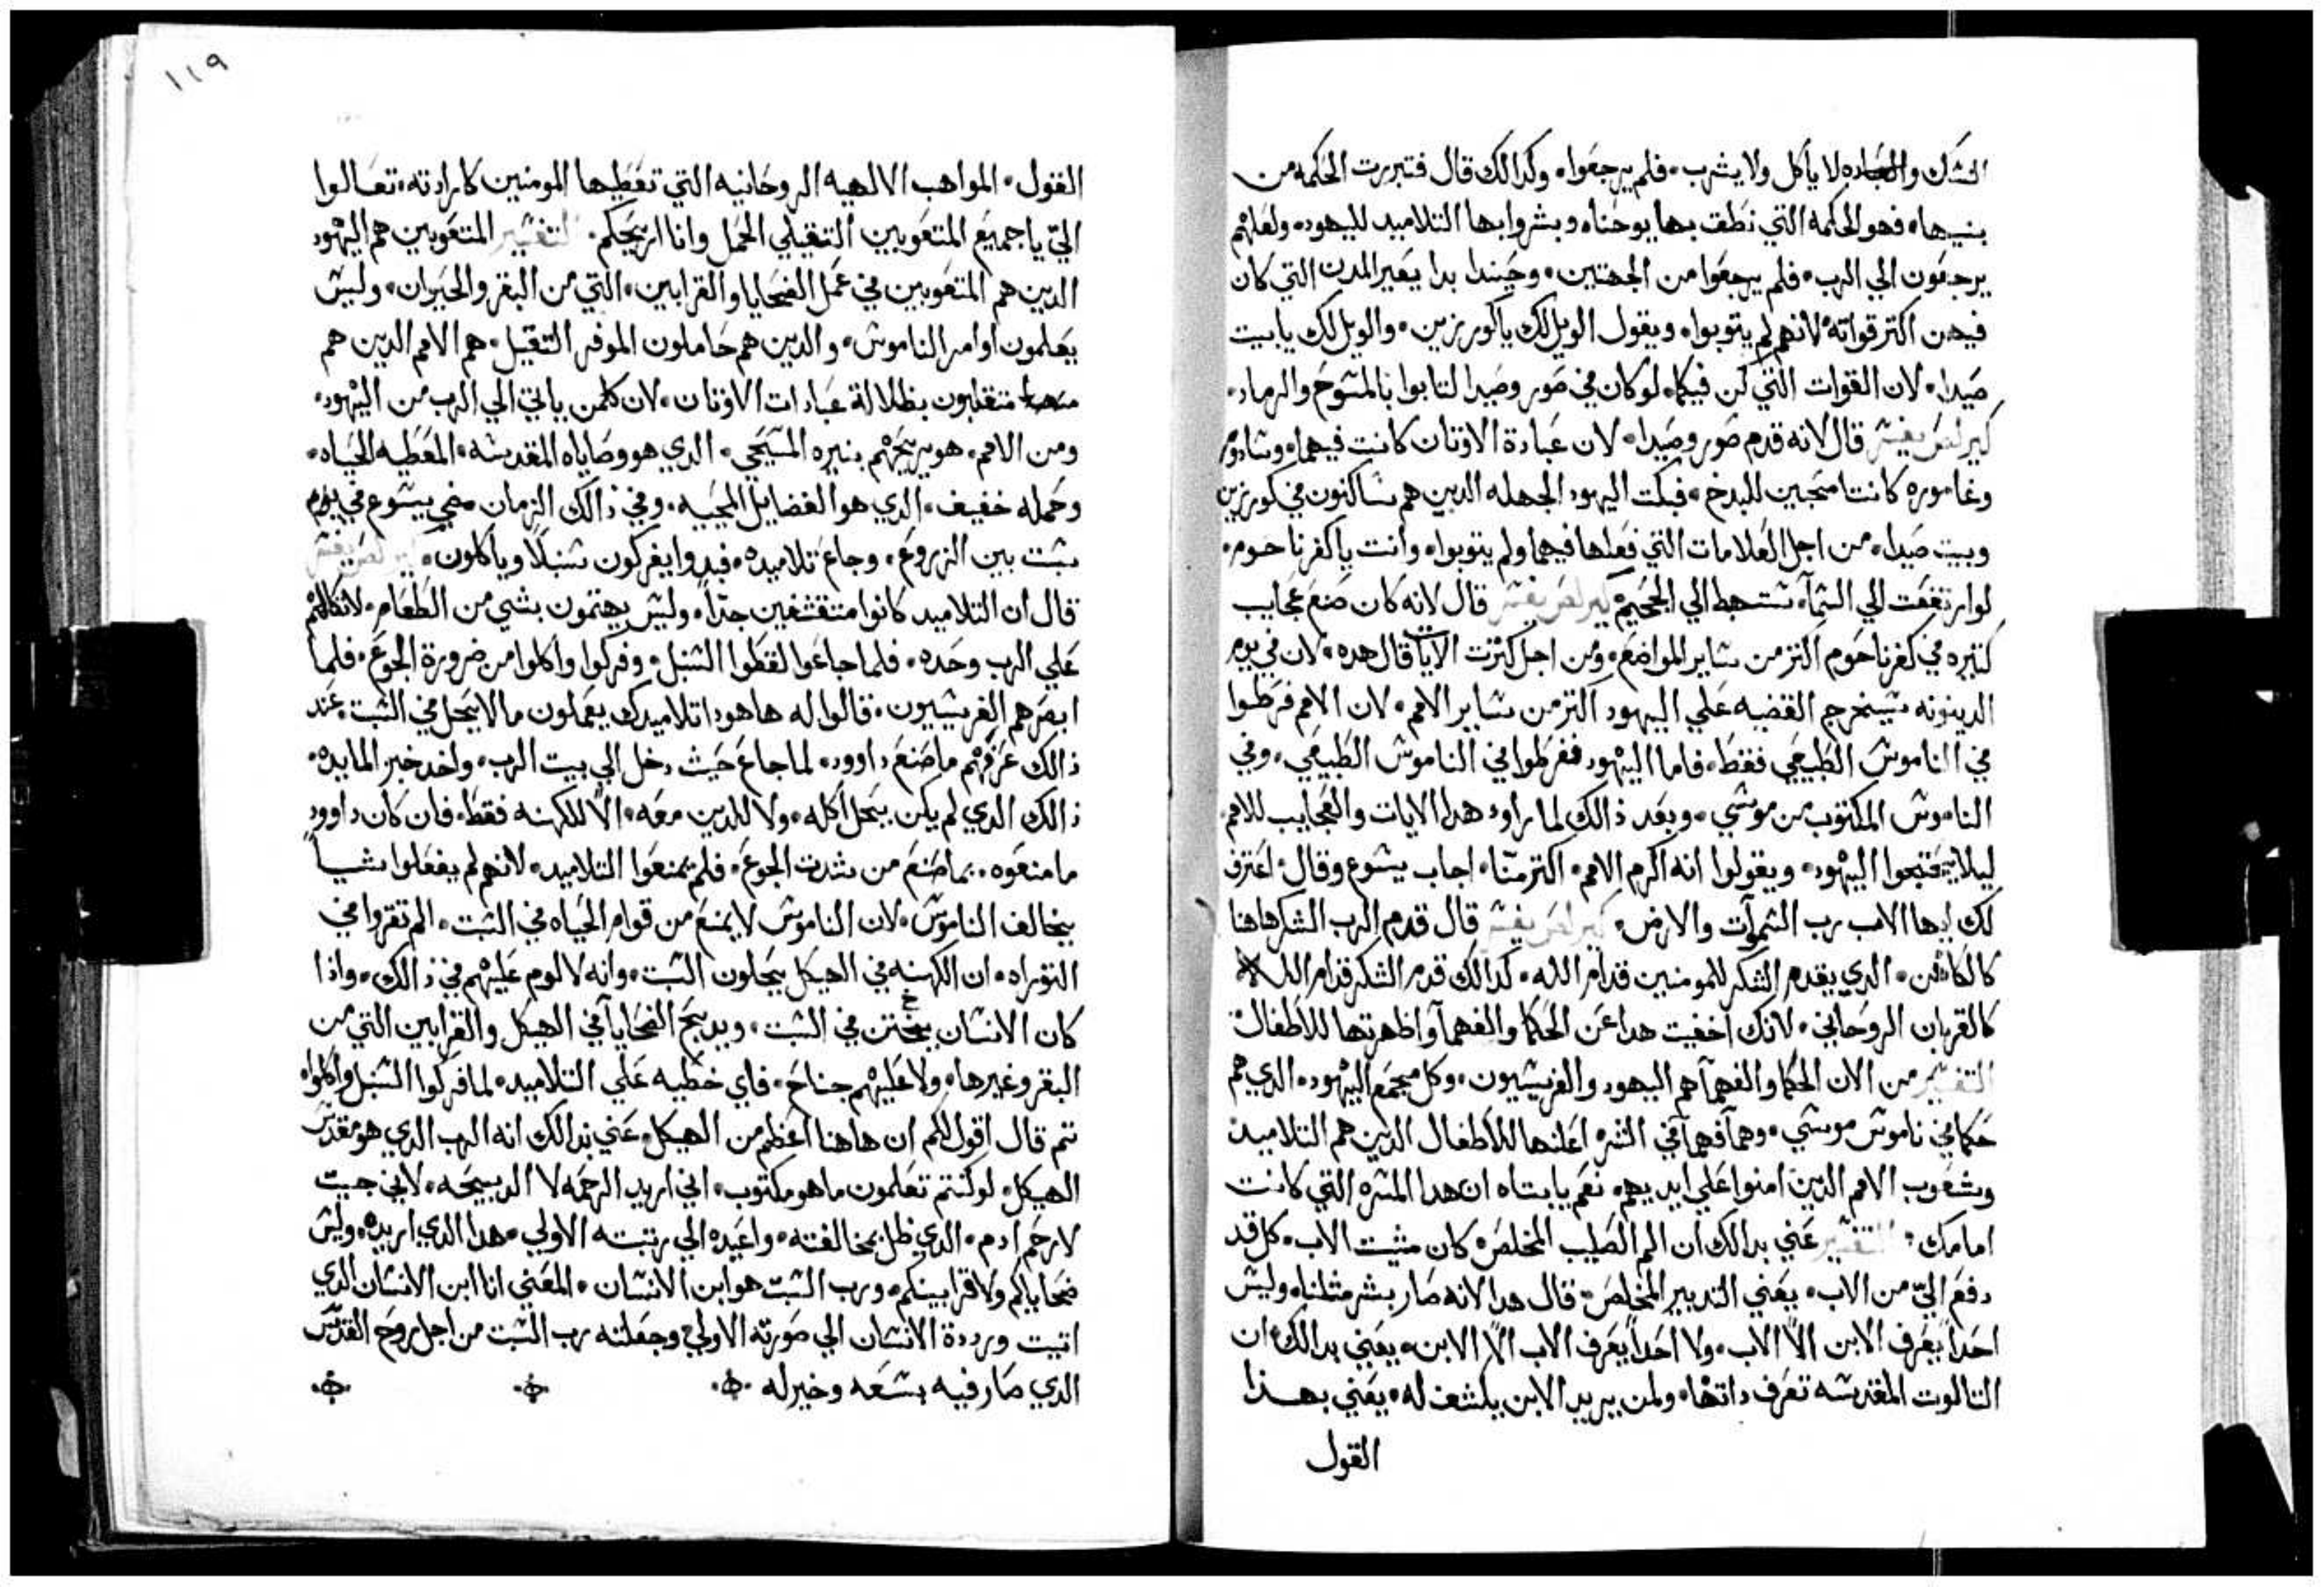 النسك والعباده لا ياكل ولا يشرب، فلم يرجعوا، وكدالك قال فتبررت الحكمه من
بنيها، فهو الحكمه التي نطق بها يوحنا، وبشروا بها التلاميد لليهود، ولعلهم
يرجعون الي الرب، فلم يرجعوا من الجهتين، وحيندا بدا يعير المدن التي كان
فيهن اكتر قواته لانهم لم يتوبوا، ويقول الويل لك ياكورزين، والويل لك يابيت
صيدا، لان القوات التي كن فيكما، لو كان في صور وصيدا لتابوا بالمسوح والرماد،
كيرلص يفسر قال لانه قدم صور وصيدا، لان عبادة الاوتان كانت فيهما، وسادوم
وغاموره كانتا محبين للبدخ، فبكت اليهود الجهله الدين هم ساكنون في كورزين
وبيت صيدا، من اجل العلامات التي فعلها فيهما ولم يتوبوا، وانت ياكفرناحوم،
لو ارتفعت الي السمآ، ستهبط الي الجحيم، كيرلص يفسر قال لانه كان صنع عجايب
كتيره في كفرناحوم اكتر من ساير المواضع، ومن اجل كترت الايات قال هده، لان في يوم
الدينونه سيخرج القضيه علي اليهود اكتر من ساير الامم، لان الامم فرطوا
في الناموس الطبيعي فقط، فاما اليهود ففرطوا في الناموس الطبيعي، وفي
الناموس المكتوب من موسي، وبعد ذالك لما راود هدا الايات والعجايب للامم،
ليلا يحتجوا اليهود، ويقولوا انه اكرم الامم، اكتر منّا، اجاب يسوع وقال، اعترف
لك ايها الاب رب السموآت والارض، كيرلص يفسر قال قدم الرب الشكر هاهنا
كالكاهن، الدي يقدم الشكر للمومنين قدام الله، كدالك قدم الشكر قدام الله
كالقربان الروحاني، لانك اخفيت هدا عن الحكما والفهمآ واظهرتها للاطفال،
التفسير من الان الحكما والفهمآ هم اليهود والفريسيون، وكل مجمع اليهود، الدي هم
حكما في ناموس موسي، وهمآ فهمآ في الشر، اعلنها للاطفال الدين هم التلاميد،
وشعوب الامم الدين امنوا علي ايديهم، نعم يا ابتاه ان هدا المسره التي كانت
امامك، التفسير عني بدالك ان الم الصليب المخلص، كان مشيت الاب، كل قد
دفع اليّ من الاب، يعني التدبير المخلص، قال هدا لانه صار بشر متلنا، وليس
احداً يعرف الابن الّا الاب، ولا احداً يعرف الاب الّا الابن، يعني بدالك ان
التالوت المقدسه تعرف داتها، ولمن يريد الابن يكشف له، يعني بهذا
القول
١١٩
القول، المواهب الالهيه الروحانيه التي تعطيها المومنين كارادته، تعالوا
اليّ ياجميع المتعوبين التقيلي الحمل وانا اريحكم، التفسير المتعوبين هم اليهود
الدين هم المتعوبين في عمل الضحايا والقرابين، التي من البقر والحيوان، وليس
يعلمون اوامر الناموس، والدين هم حاملون الموفر التقيل، هم الامم الدين هم
متقلبون بظلالة عبادات الاوتان، لان كلمن ياتي الي الرب من اليهود،
ومن الامم، هو يريحهم بنيره المسيحي، الدي هو وصاياه المقدسه، المعطيه الحياه،
وحمله خفيف، الدي هو الفضايل المحييه، وفي ذالك الزمان مضي يسوع في يوم
سبت بين الزروع، وجاع تلاميده، فبدوا يفركون سنبلًا وياكلون، كيرلص يفسر
قال ان التلاميد كانوا متقشفين جدًا، وليس يهتمون بشي من الطعام، لاتكالهم
علي الرب وحده، فلما جاعوا لقطوا السنبل، وفركوا واكلوا من ضرورة الجوع، فلما
ابصرهم الفريسيون، قالوا له هاهودا تلاميدك يعملون مالا يحل في السبت، عند
ذالك عرفهم ما صنع داوود، لما جاع حيث دخل الي بيت الرب، واخد خبز المايده،
ذالك الدي لم يكن يحل اكله، ولا للدين معه، الّا للكهنه فقط، فان كان داوود
ما منعوه، بما صنع من شدت الجوع، فلم تمنعوا التلاميد، لانهم لم يفعلوا شياً
يخالف الناموس، لان الناموس لا يمنع من قوام الحياه في السبت، الم تقروا في
التوراه، ان الكهنه في الهيكل يحلون السبت، وانه لا لوم عليهم في ذالك، واذا
كان الانسان يختن في السبت، ويدبح الضحايا في الهيكل والقرابين التي من
البقر وغيرها، ولا عليهم جناح، فاي خطيه علي التلاميد، لما فركوا السنبل واكلوا،
تم قال اقول لكم ان هاهنا اعظم من الهيكل، عني بدالك انه الرب الدي هو مقدس
الهيكل، لو كنتم تعلمون ما هو مكتوب، اني اريد الرحمه لا الدبيحه، لاني جيت
لارحم ادم، الدي ظل بمخالفته، واعيده الي رتبته الاولي، هدا الدي اريده، وليس
ضحاياكم ولا قرابينكم، ورب السبت هو ابن الانسان، المعني انا ابن الانسان الدي
اتيت ورددة الانسان الي صورته الاولي، وجعلته رب السبت من اجل روح القدس
الدي صار فيه بسعه وخير له